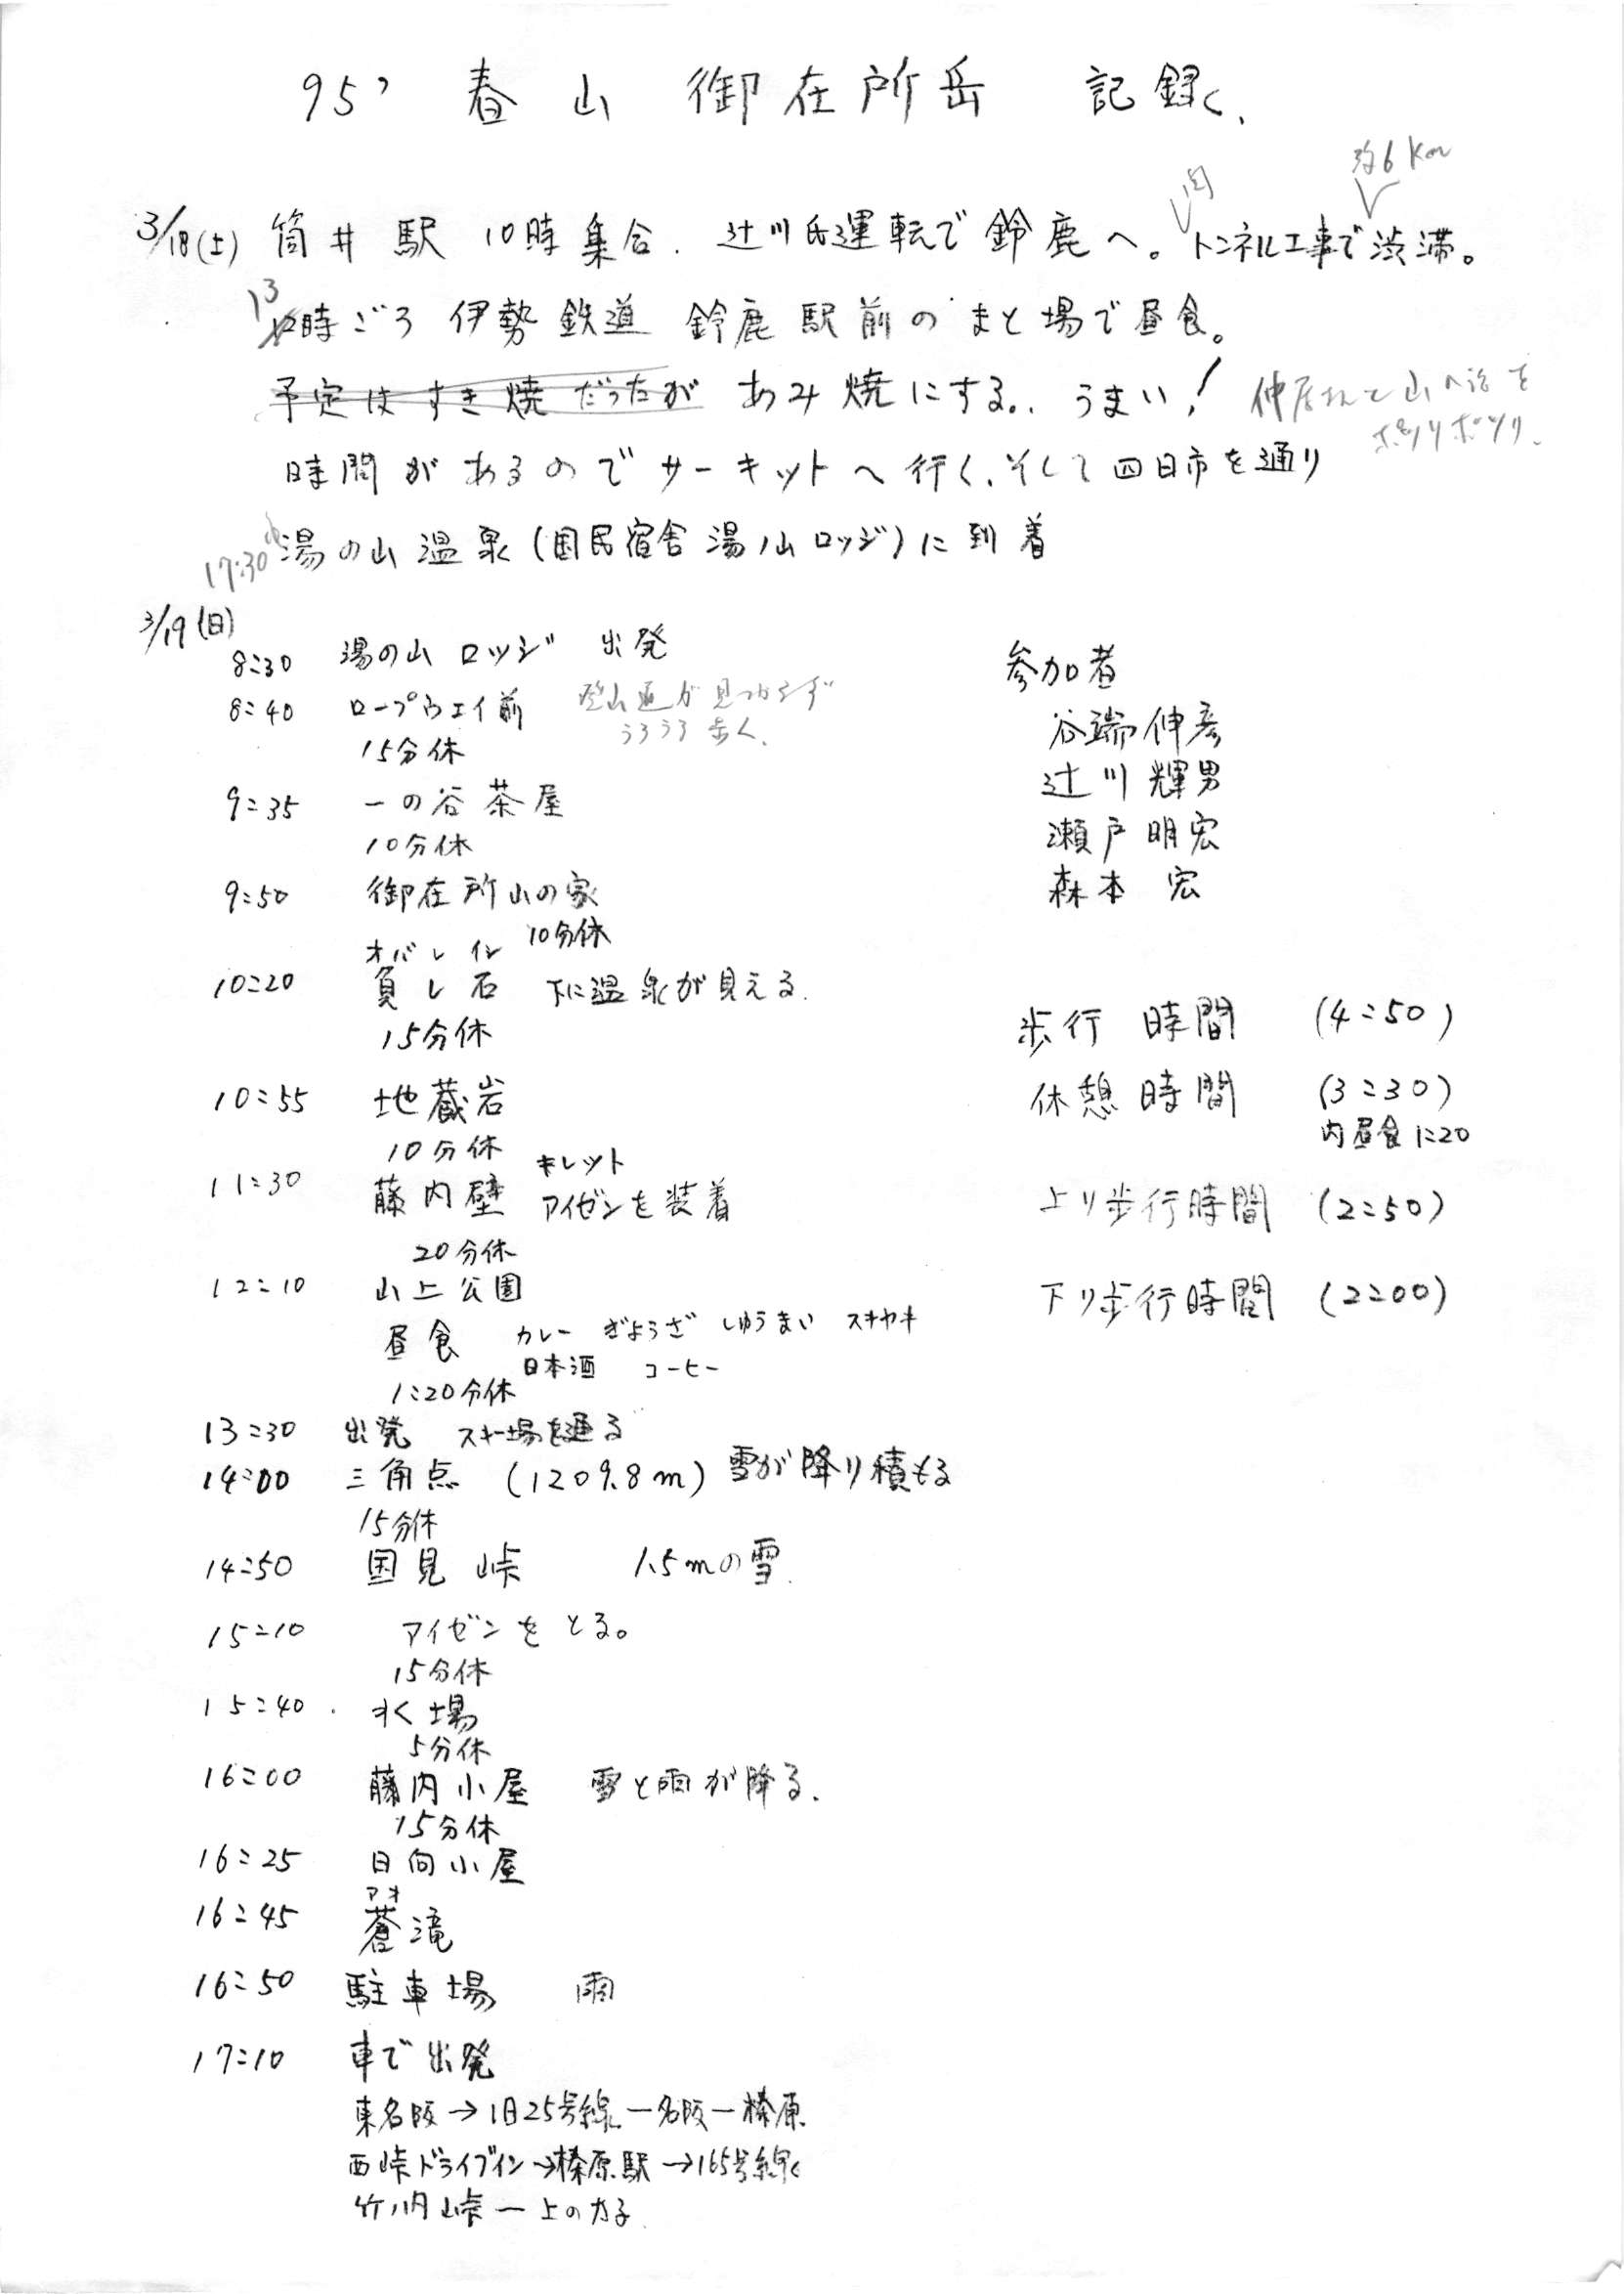 95' 春山 御在所岳 記録
約6km
関
3/18(土) 筒井駅 10時集合. 辻川氏運転で鈴鹿へ。トンネル工事で渋滞。
13時ごろ 伊勢鉄道 鈴鹿駅前の まと場で昼食。
予定はすき焼だったが あみ焼にする。 うまい!
仲居さんと山の話を
ポツリポツリ.
時間があるのでサーキットへ行く. そして四日市を通り
17:30 湯の山温泉(国民宿舎 湯ノ山ロッジ)に到着
3/19(日)
8:30 湯の山ロッジ 出発
8:40 ロープウエイ前 登山道が見つからず
うろうろ歩く.
15分休
9:35 一の谷茶屋
10分休
9:50 御在所山の家
10分休
オバレイシ
10:20 負レ石 下に温泉が見える.
15分休
10:55 地蔵岩
10分休
キレット
11:30 藤内壁 アイゼンを装着
20分休
12:10 山上公園
昼食 カレー ぎょうざ しゅうまい スキヤキ
日本酒 コーヒー
1:20分休
13:30 出発 スキー場を通る
14:00 三角点 (1209.8m) 雪が降り積もる
15分休
14:50 国見峠 1.5mの雪.
15:10 アイゼンをとる。
15分休
15:40 水場
5分休
16:00 藤内小屋 雪と雨が降る.
15分休
16:25 日向小屋
アオ
16:45 蒼滝
16:50 駐車場 雨
17:10 車で出発
東名阪→旧25号線ー名阪ー榛原
西峠ドライブイン→榛原駅→165号線
竹ノ内峠ー上の太子
参加者
谷端伸彦
辻川輝男
瀬戸明宏
森本 宏
歩行時間 (4:50)
休憩時間 (3:30)
内昼食1:20
上り歩行時間 (2:50)
下り歩行時間 (2:00)